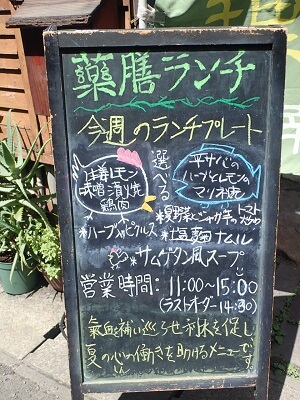 藥膳ランチ
今週のランチプレート
生姜レモン
味噌漬焼
鶏肉
選べる
平サバの
ハーブとレモンの
マリネ焼
*夏野菜とジャガ芋のトマト
*ハーブのピクルス
*塩麹ナムル
*サムゲタン風スープ
営業時間:11:00〜15:00
(ラストオーダー14:30)
氣血を補い巡らせ利水を促し
夏の心の働きを助けるメニューです。